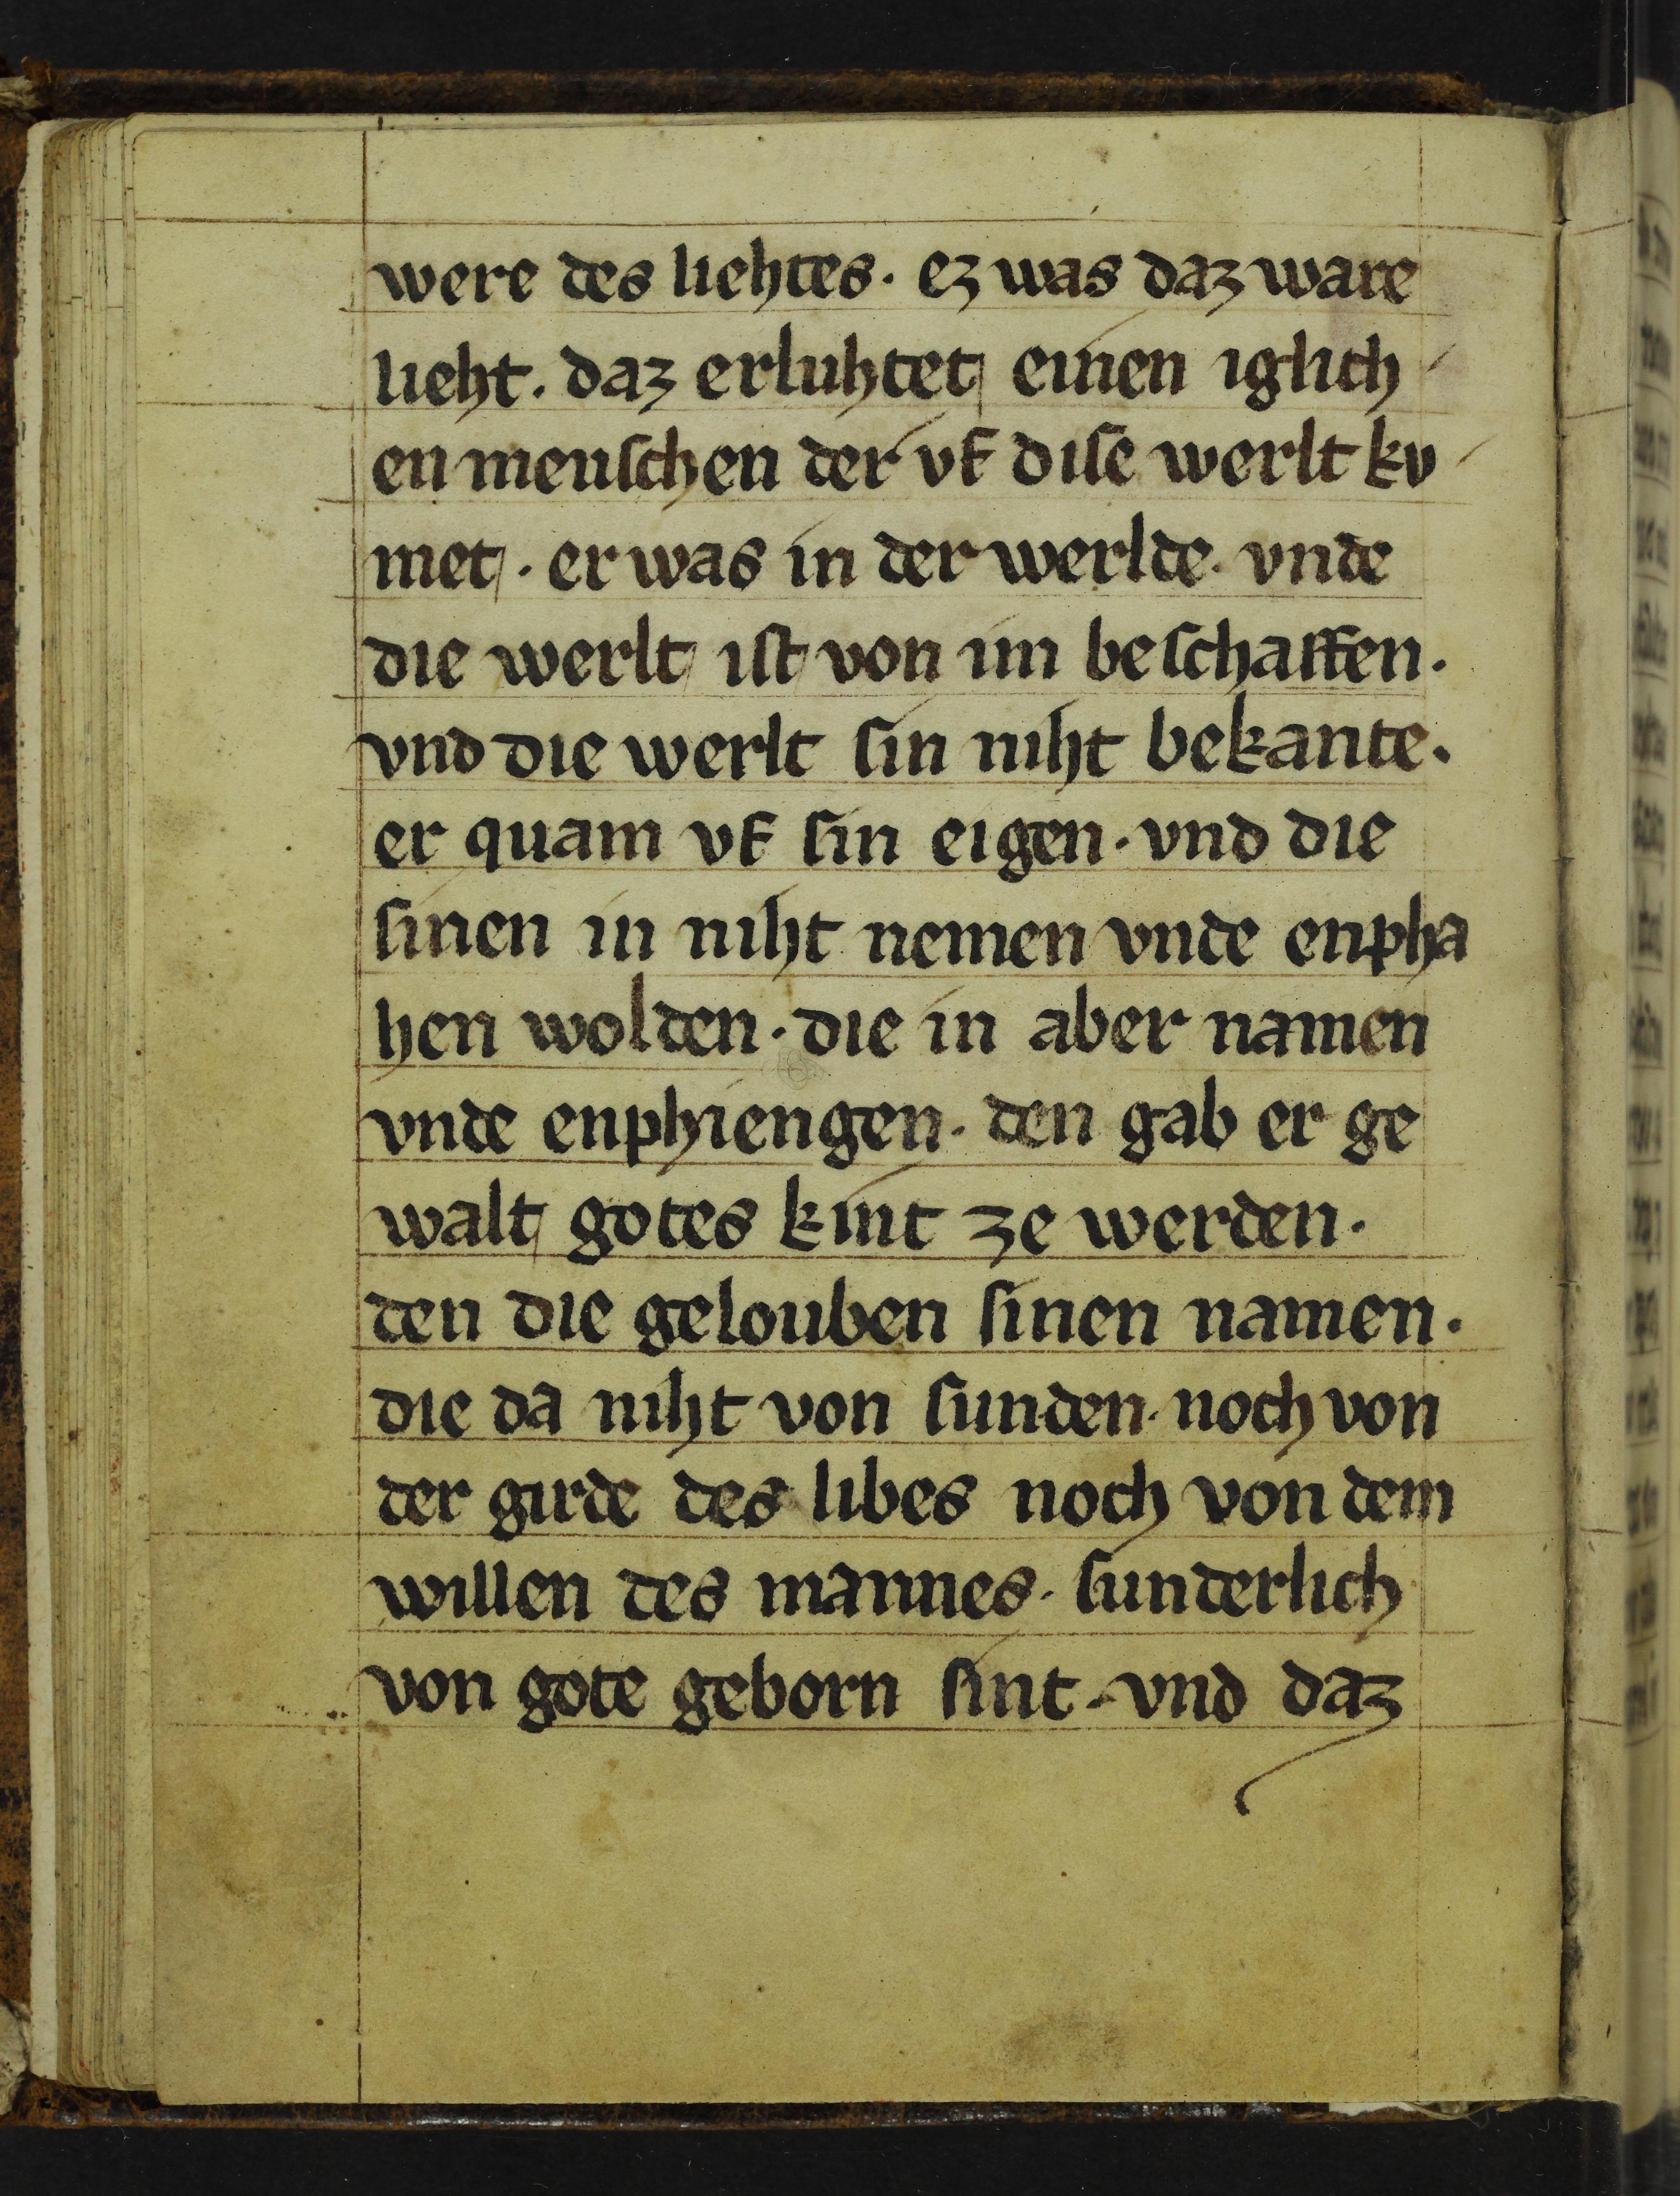 were des liehtes · ez was daz ware
lieht · daz erluhtet einen iglich
en menschen der vf dise werlt kv
met · er was in der werlde · vnde
die werlt ist von im beschaffen ·
vnd die werlt sin niht bekante ·
er quam vf sin eigen · vnd die
sinen in niht nemen vnde enpha
hen wolden · die in aber namen
vnde enphiengen · den gab er ge
walt gotes kint ze werden ·
den die gelouben sinen namen ·
die da niht von sunden · noch von
der girde des libes noch von dem
willen des mannes · sunderlich
von gote geborn sint · vnd daz